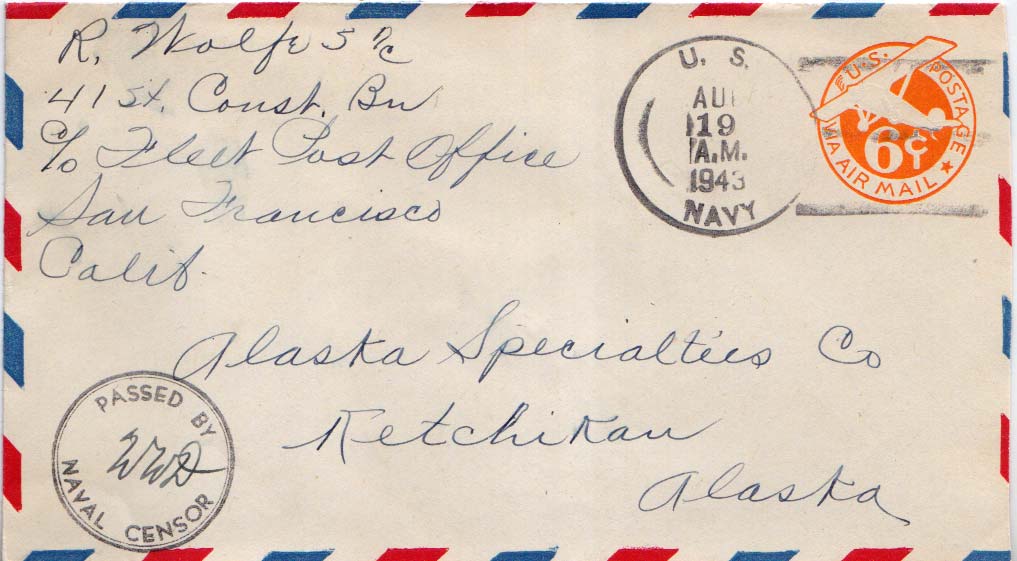 R. Wolfe S 1/c
41 st. Const. Bn
c/o Fleet Post Office
San Francisco
Calif.
U. S.
AU
19
A.M.
1943
NAVY
U.S. POSTAGE
6¢
VIA AIR MAIL
Alaska Specialties Co
Ketchikan
Alaska
PASSED BY
WWD
NAVAL CENSOR